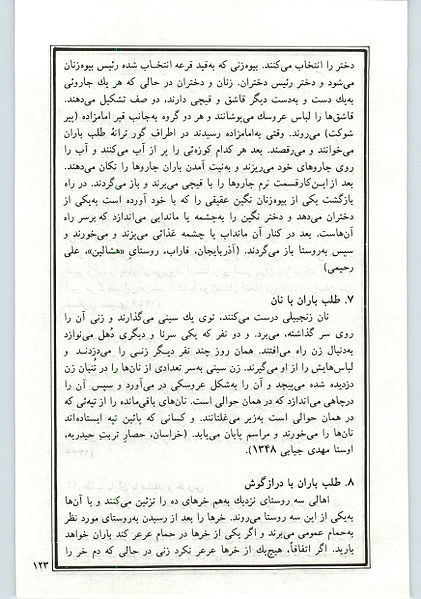 دختر را انتخاب می‌کنند. بیوه‌زنی که به‌قید قرعه انتخـاب شده رئیس بیوه‌زنان
می‌شود و دختر رئیس دختران. زنان و دختران در حالی که هر یك جاروئی
به‌یك دست و به‌دست دیگر قاشق و قیچی دارند، دو صف تشکیل می‌دهند.
قاشق‌ها را لباس عروسك می‌پوشانند و هر دو گروه به‌جانب قبر امامزاده (پیر
شوکت) می‌روند. وقتی به‌امامزاده رسیدند در اطراف گور ترانهٔ طلب باران
می‌خوانند و می‌رقصند. بعد هر کدام کوزه‌ئی را پر از آب می‌کنند و آب را
روی جاروهای خود می‌ریزند و به‌نیت آمدن باران جاروها را تکان می‌دهند.
بعد از این‌کارقسمت نرم جاروها را با قیچی می‌برند و باز می‌گردند. در راه
بازگشت یکی از بیوه‌زنان نگین عقیقی را که با خود آورده است به‌یکی از
دختران می‌دهد و دختر نگین را به‌چشمه یا ماندابی می‌اندازد که برسر راه
آن‌هاست. بعد در کنار آن مانداب یا چشمه غذائی می‌پزند و می‌خورند و
سپس به‌روستا باز می‌گردند. (آذربایجان، فاراب، روستای «هشالین»، علی
رحیمی)
۷. طلب باران با نان
نان زنجبیلی درست می‌کنند، توی یك سینی می‌گذارند و زنی آن را
روی سر گذاشته، می‌برد. و دو نفر که یکی سرنا و دیگری دُهل می‌نوازد
به‌دنبال زن راه می‌افتند. همان روز چند نفر دیـگر زنـی را می‌دزدنـد و
لباس‌هایش را از او می‌گیرند. زن سینی به‌سر تعدادی از نان‌ها را در تُنبان زن
دزدیده شده می‌پیچد و آن را به‌شکل عروسکی در می‌آورد و سپس آن را
درچاهی می‌اندازد که در همان حوالی است. نان‌های باقی‌مانده را از تپه‌ئی که
در همان حوالی است به‌زیر می‌غلتانند. و کسانی که پائین تپه ایستاده‌اند
نان‌ها را می‌خورند و مراسم پایان می‌یابد. (خراسان، حصارِ تربتِ حیدریه،
اوستا مهدی جیابی ۱۳۴۸).
۸. طلب باران با درازگوش
اهالی سه روستای نزدیك به‌هم خرهای ده را تزئین می‌کنند و با آن‌ها
به‌یکی از این سه روستا می‌روند. خرها را بعد از رسیدن به‌روستای مورد نظر
به‌حمام عمومی می‌برند و اگر یکی از خرها در حمام عرعر کند باران خواهد
بارید. اگر اتفاقاً، هیچ‌یك از خرها عرعر نکرد زنی در حالی که دم خر را
۱۲۳